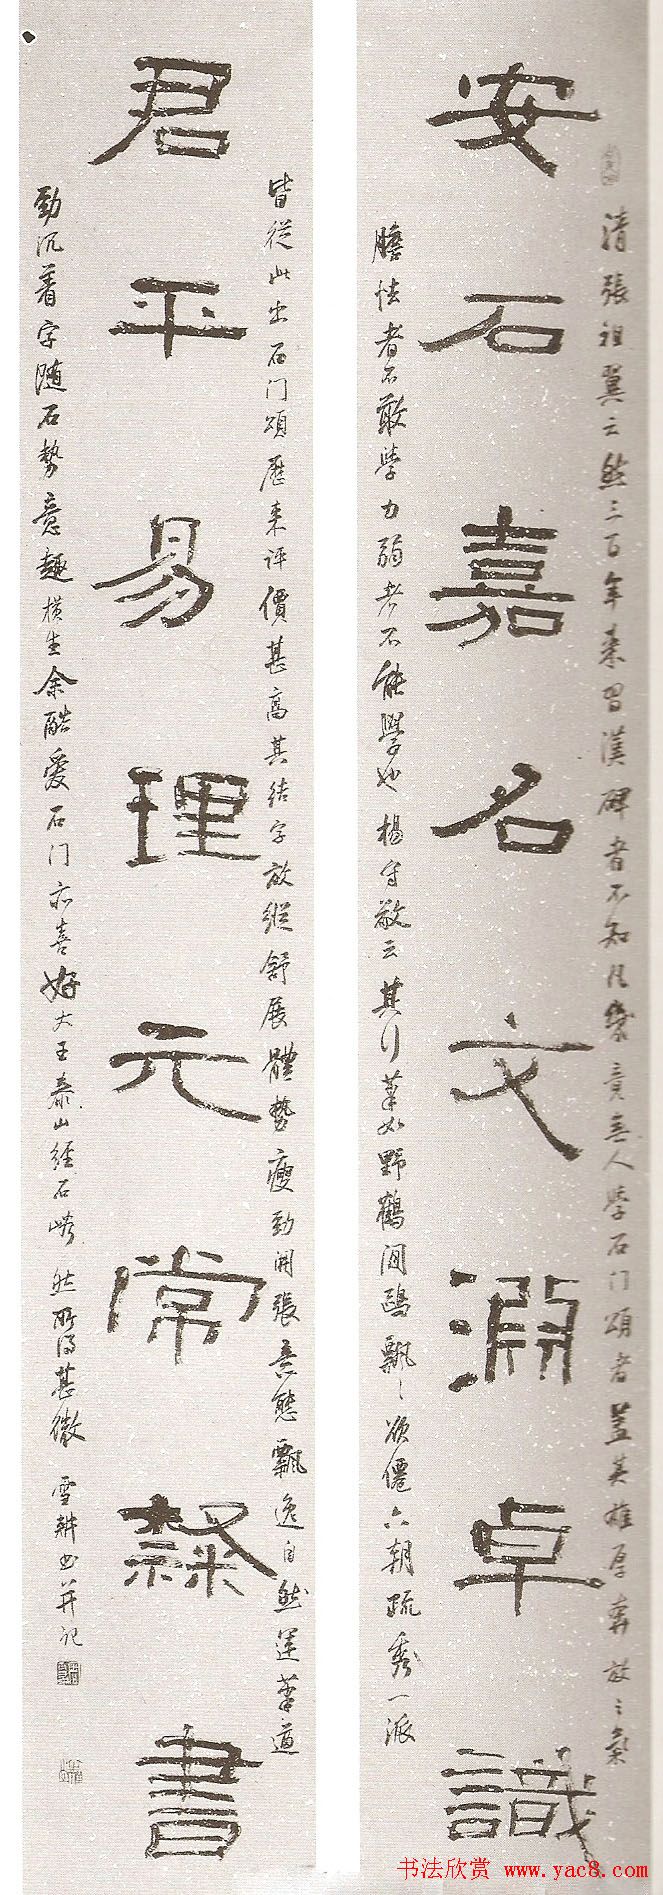 清張祖翼云然三百年来習漢碑者不知凡幾竟無人學石门頌者盖其雄厚奔放之氣
安石嘉名文淵卓識
膽怯者不敢學力弱者不能學也楊守敬云其行筆如野鶴闲鷗飄〻欲僊六朝疏秀一派
皆從此出石门頌歷来评價甚高其结字放縱舒展體勢瘦勁開張意態飄逸自然運筆遒
君平易理元常隸書
勁沉着字随石勢意趣横生余酷爱石门亦喜好大王泰山經石峪然所得甚微 雪耕书并记
书法欣赏 www.yac8.com